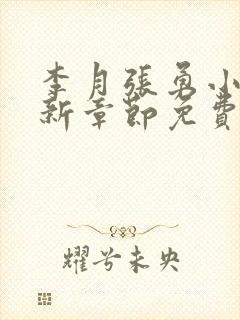 李月張勇小
新章節免費
耀兮未央